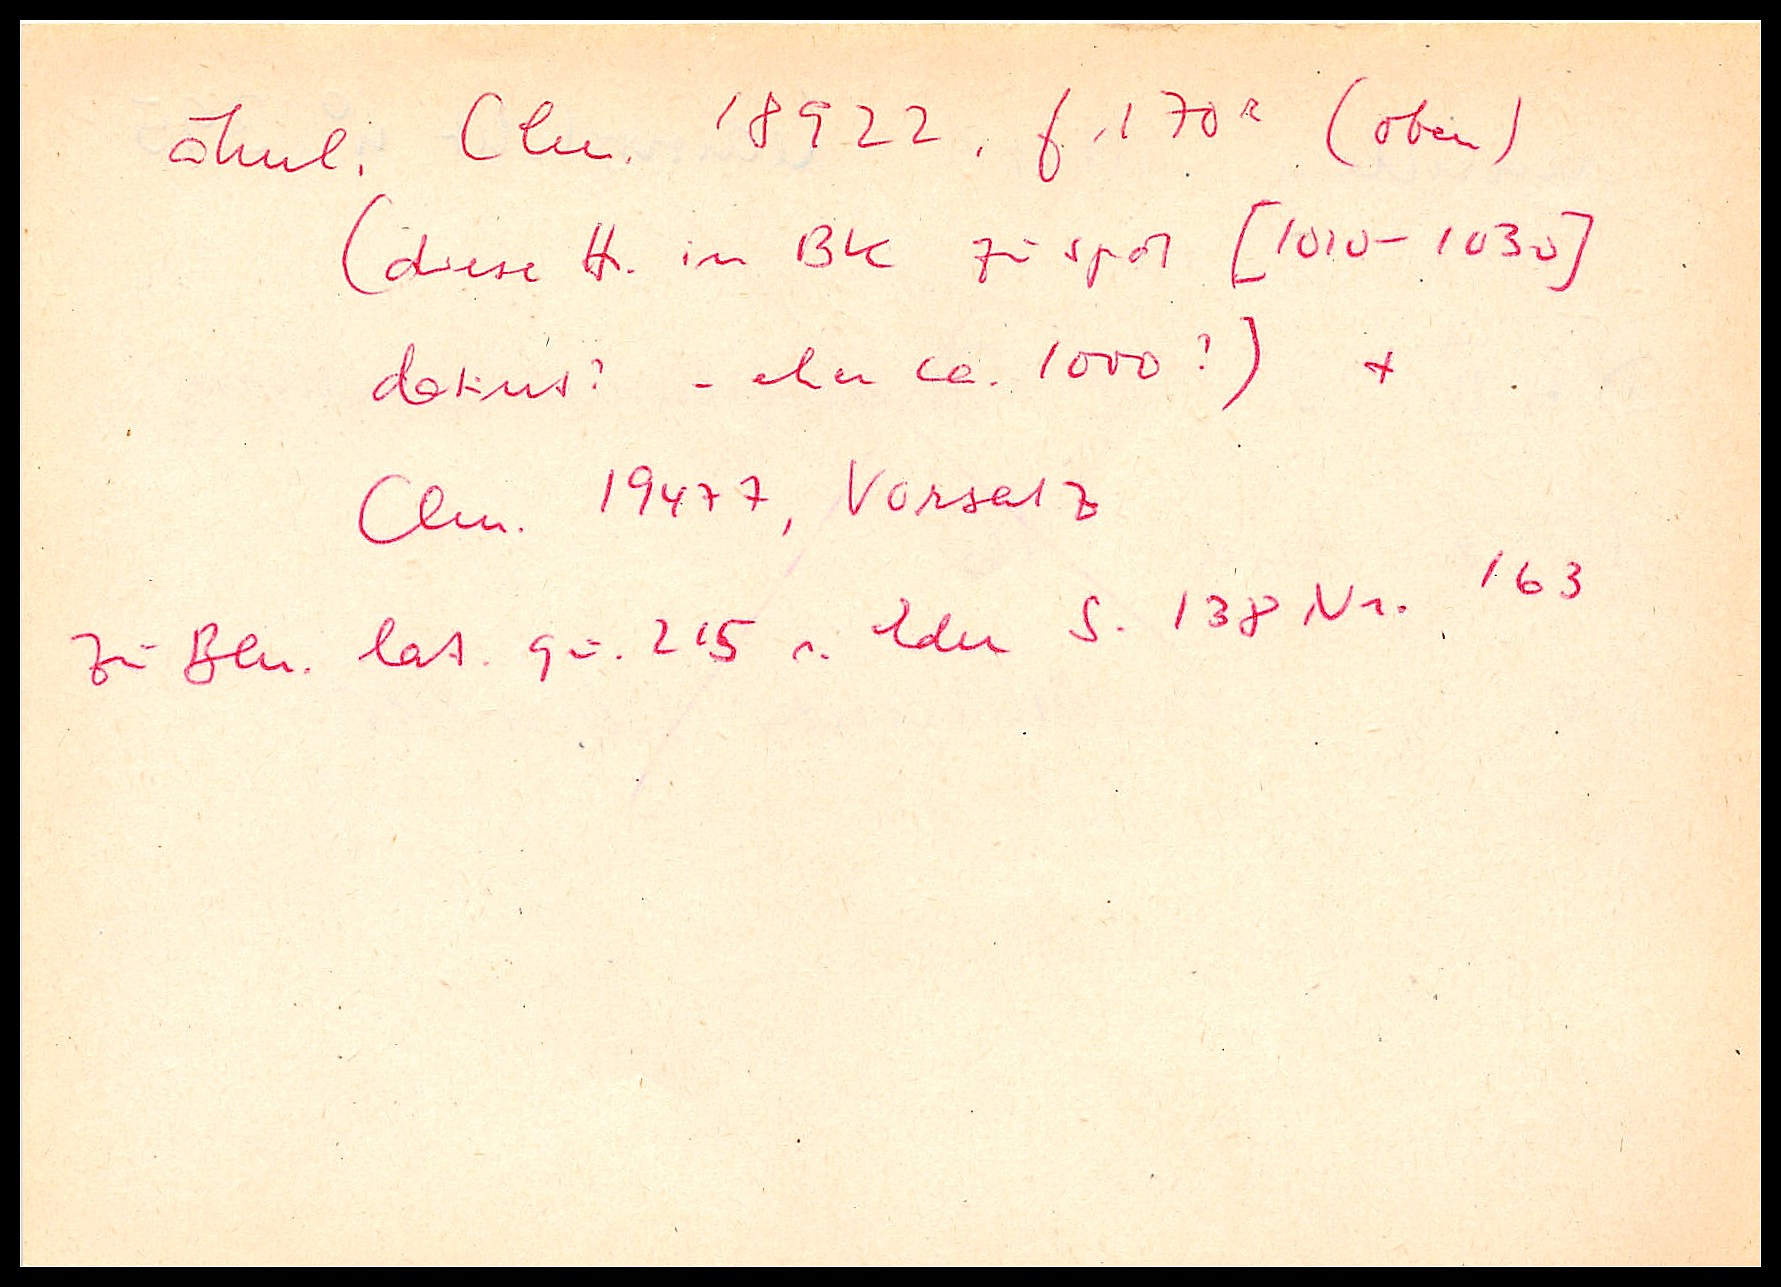 ähnl. Clm. 18922, f. 170ʳ (oben)
(diese H. in BK zu spät [1010–1030]
datiert? – eher ca. 1000?) +
Clm. 19477, Vorsatz
Zu Bln. lat. qu. 215 s. Eder S. 138 Nr. 163